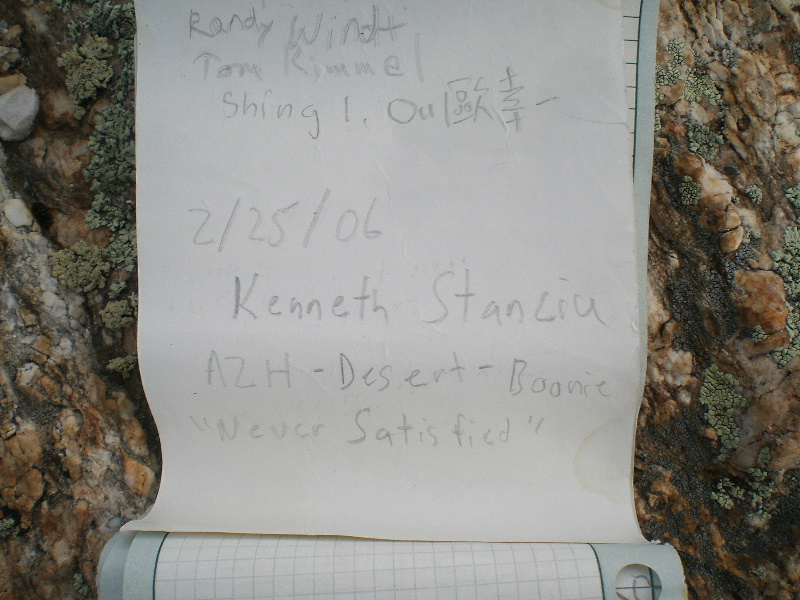 Randy Windt
Tom Kimmel
Shing I. Ou 歐幸一
2/25/06
Kenneth Stanciu
AZH-Desert-Boonie
"Never Satisfied"